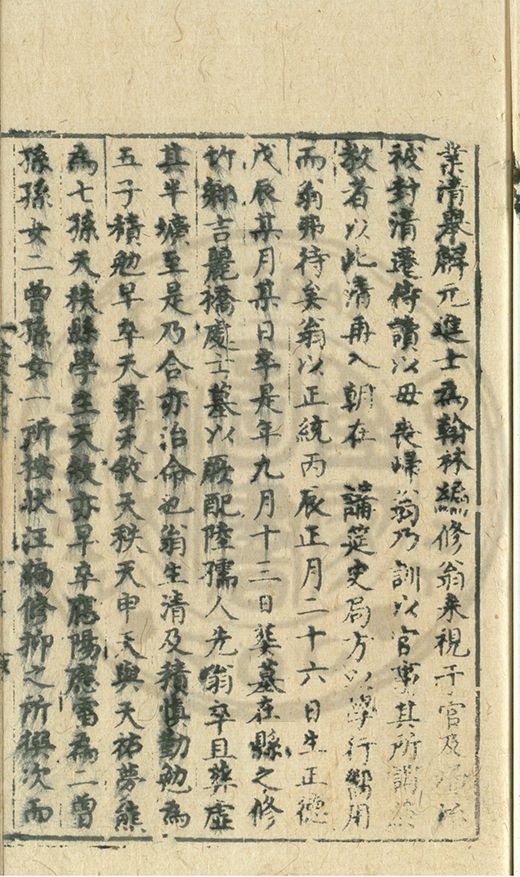 業清舉解元進士為翰林編修翁來視于官及清
被封清遷侍讀以母喪歸翁乃訓以官業其所講
教者以此清再入朝在　講筵史局方以學行嚮用
而翁弗待矣翁以正統丙辰正月二十六日生正德
戊辰某月某日卒是年九月十三日葬墓在縣之修
竹鄉吉麗橋處士墓以厥配陸孺人先翁卒且葬虛
其半壙至是乃合亦治命也翁生清及積慎勤勉為
五子積勉早卒天彝天敘天秩天申天與天祐夢熊
為七孫天秩縣學生天敘亦早卒應陽應雷為二曾
孫孫女二曾孫女一所按狀汪編修抑之所撰次而